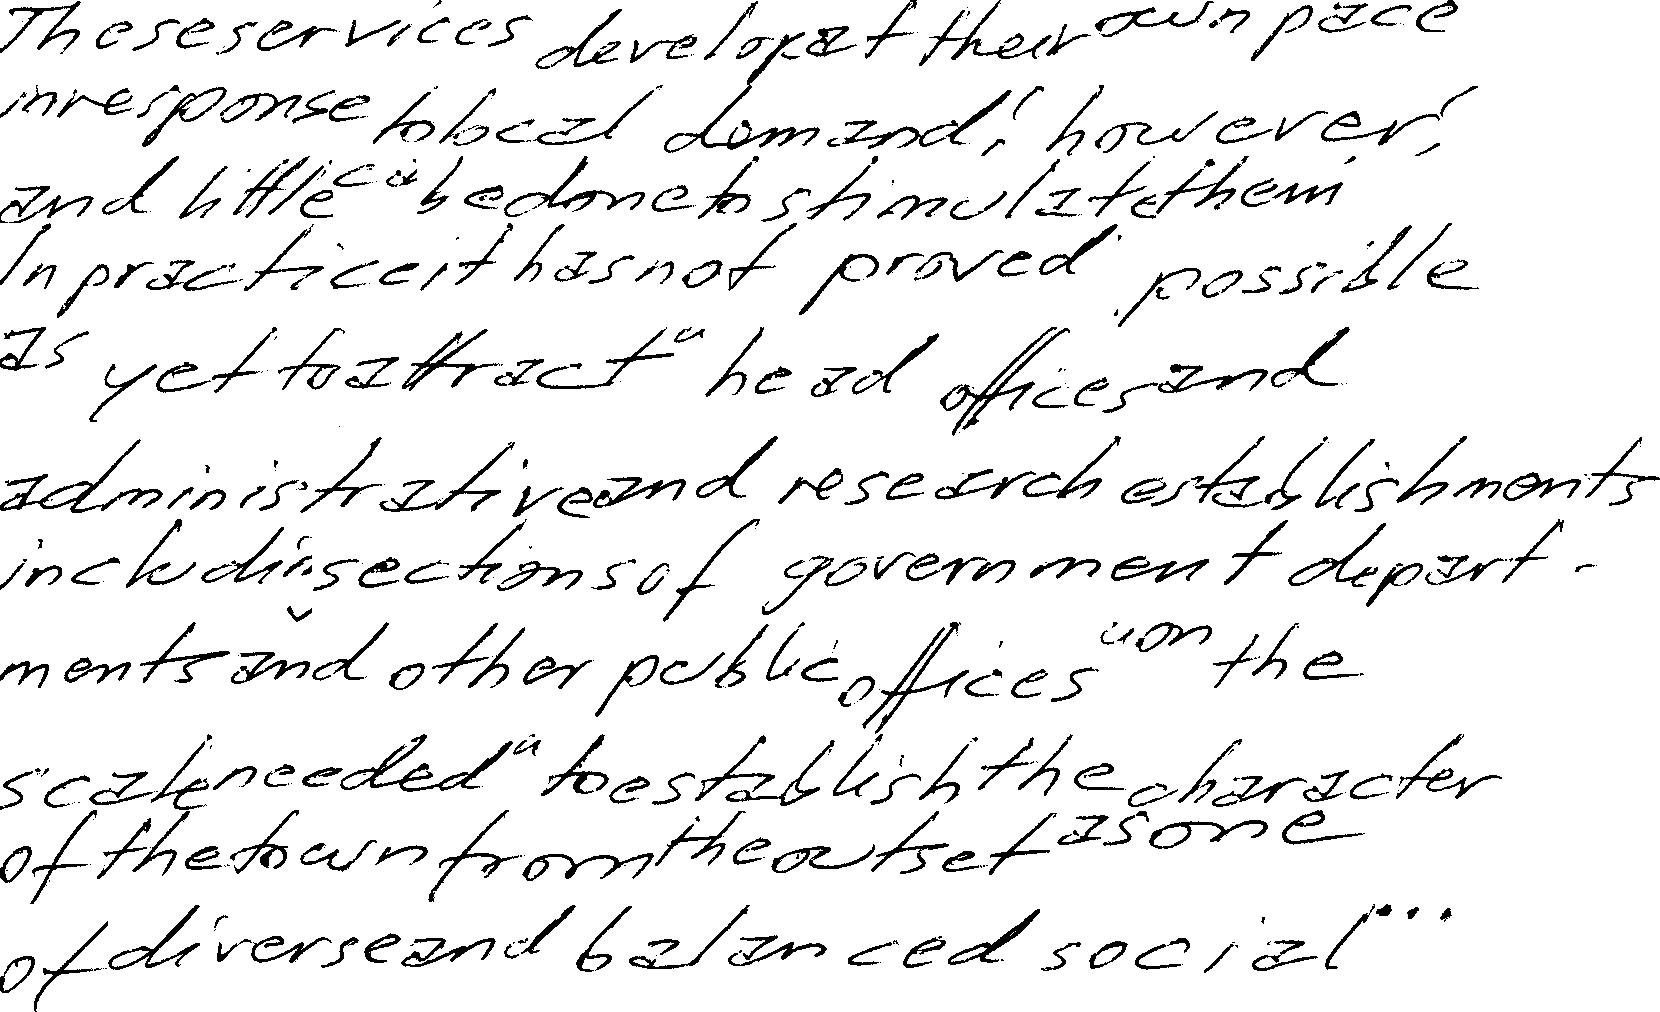 These services develop at their own pace
in response to local demand, however,
and little can be done to stimulate them.
In practice it has not proved possible
as yet to attract head offices and
administrative and research establishments
including sections of government depart-
ments and other public offices on the
scale needed to establish the character
of the town from the outset as one
of diverse and balanced social ...